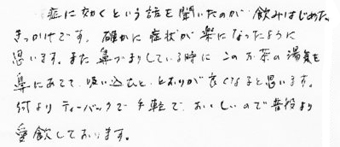 症に効くという話を聞いたのが飲みはじめた
きっかけです。確かに症状が楽になったように
思います。また鼻づまりしている時にこのお茶の湯気を
鼻にあてて吸い込むと、とおりが良くなると思います。
何よりティーバックで手軽で、おいしいので普段より
愛飲しております。